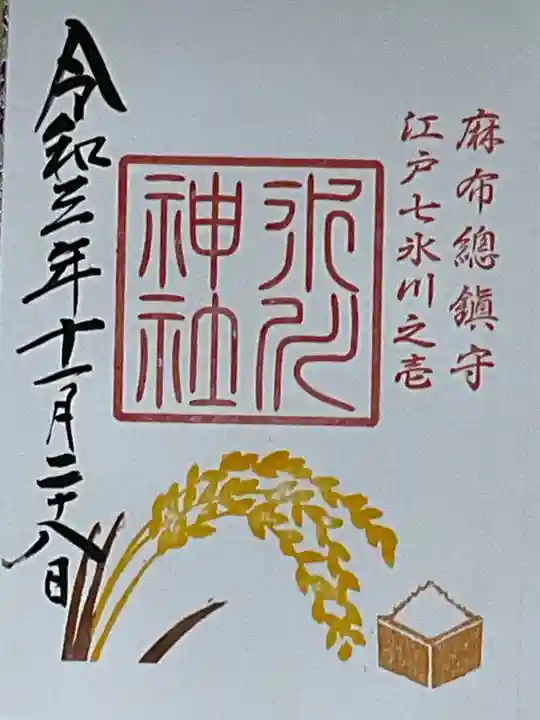 麻布總鎮守
江戸七氷川之壱
氷川神社
令和三年十一月二十八日